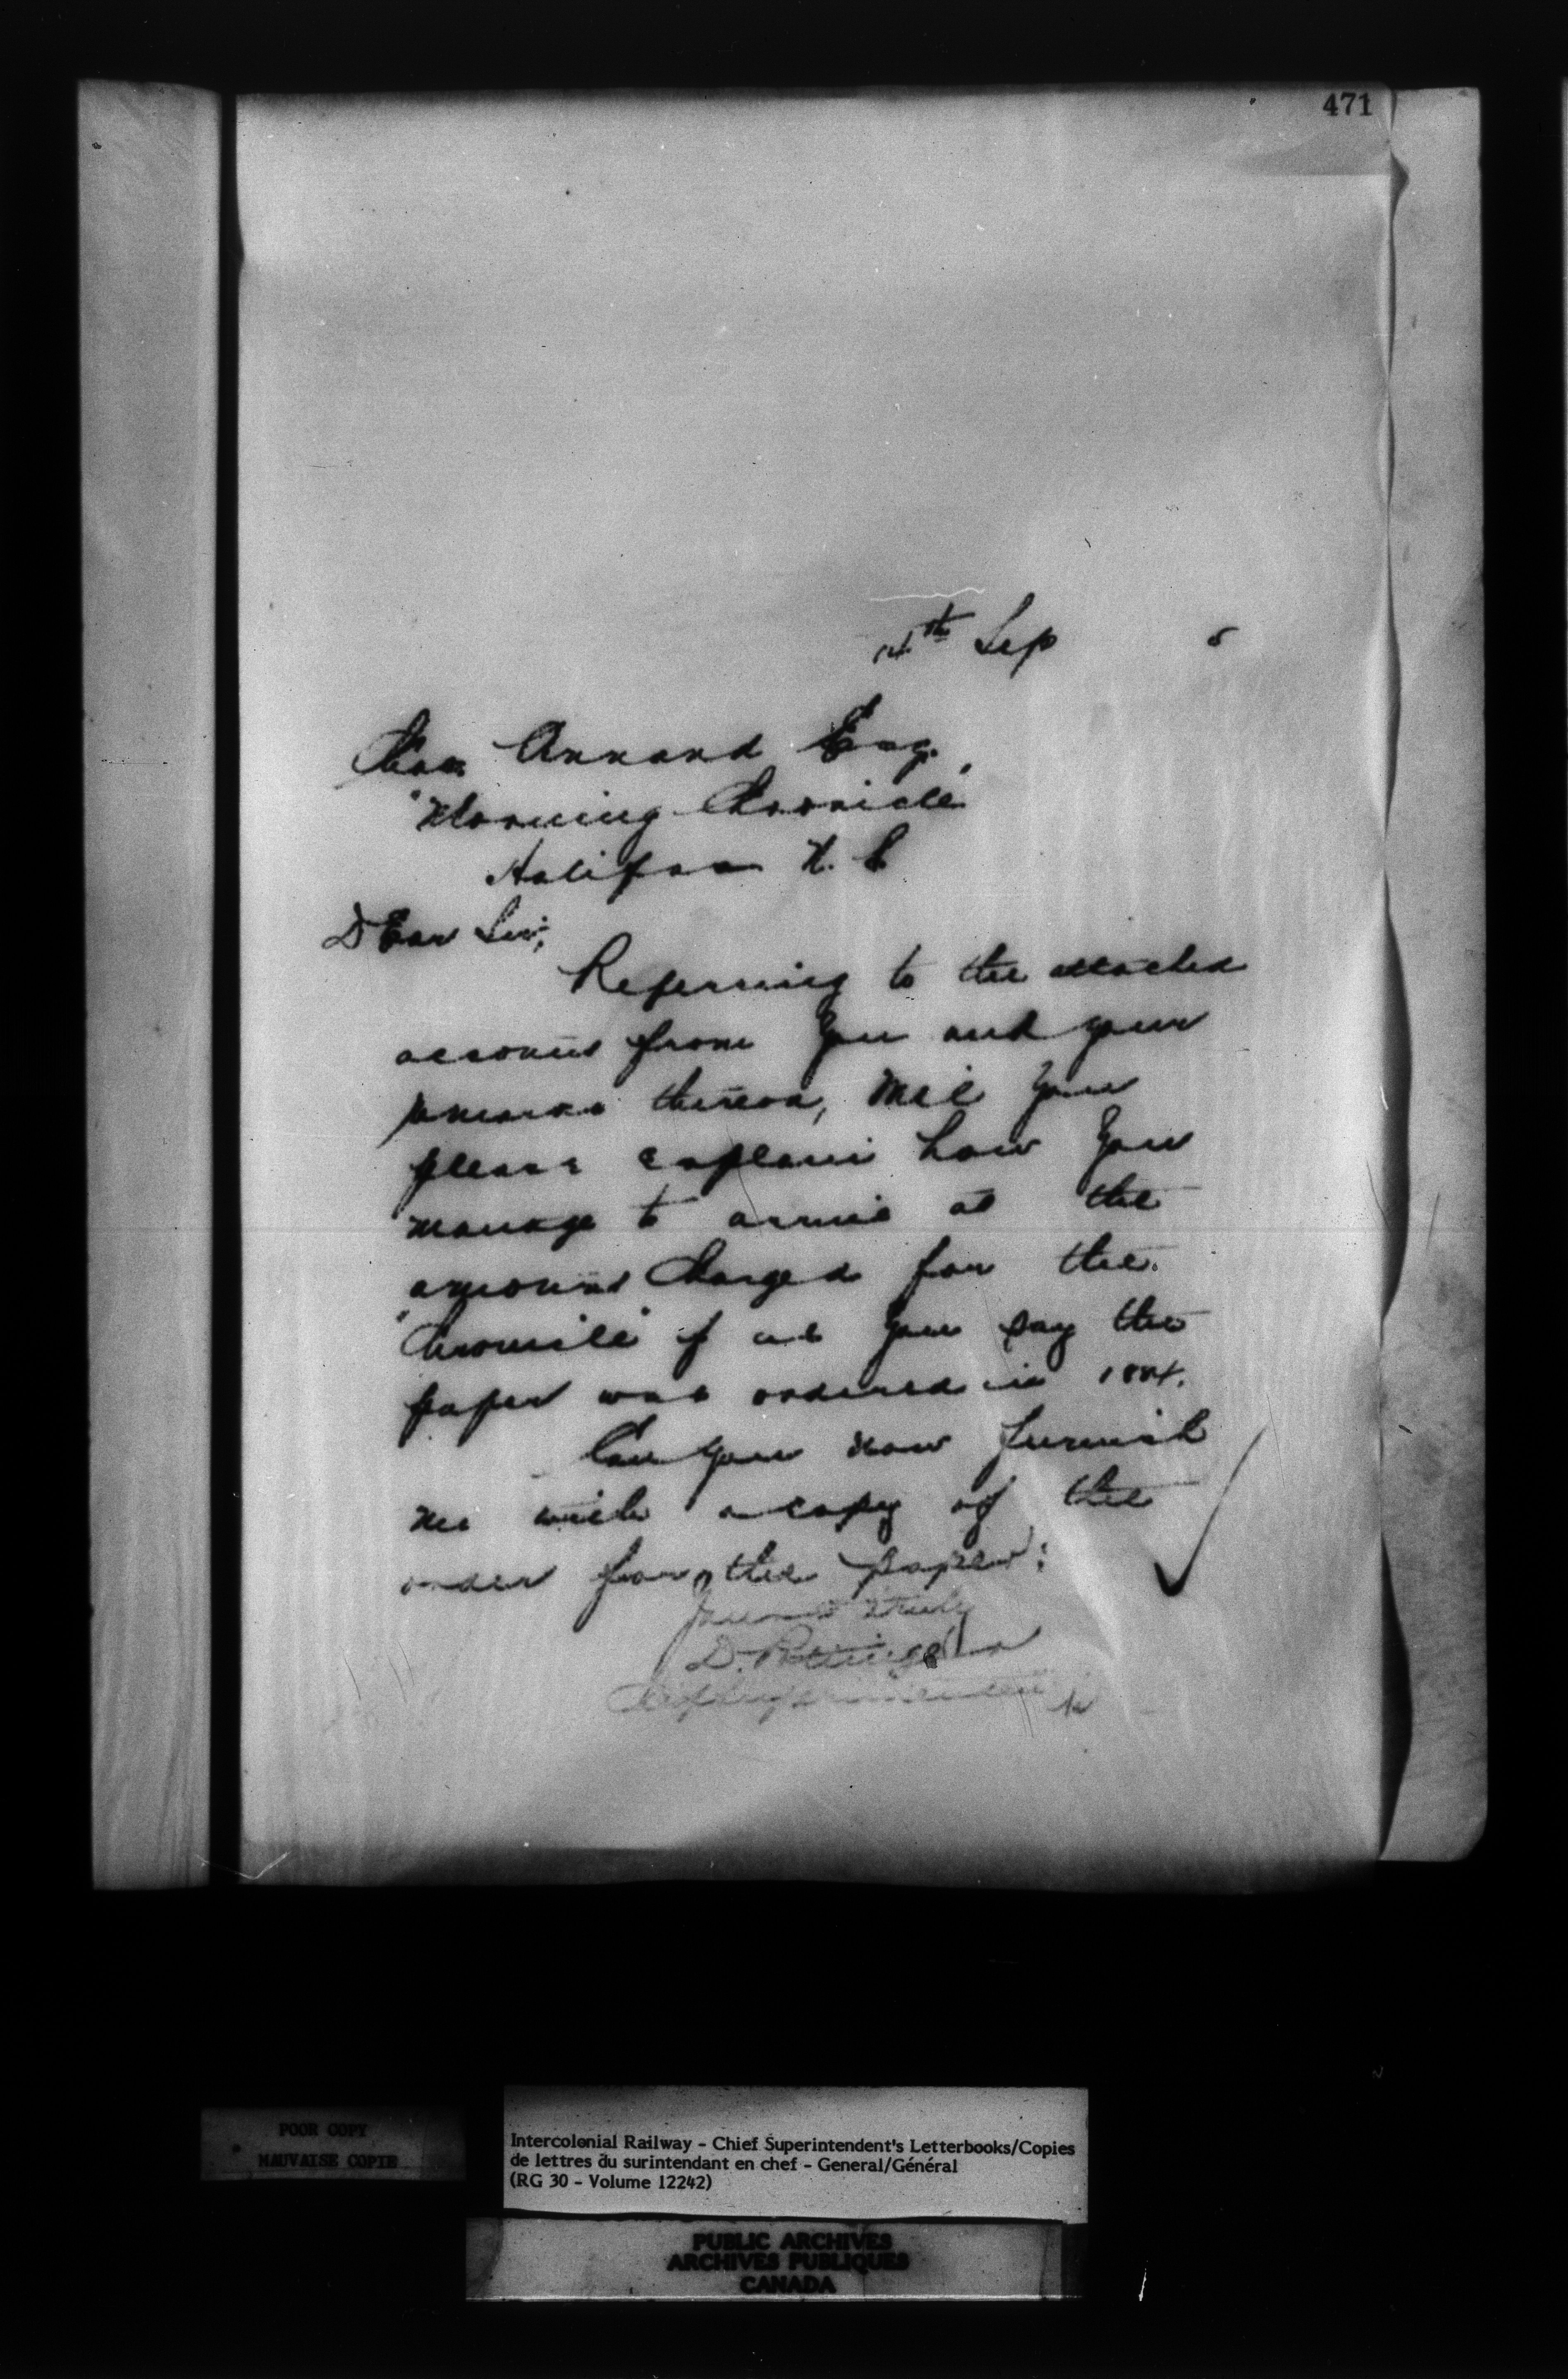 471
14th Sep 5
Chas Annand Esq.
"Morning Chronicle"
Halifax N. S
Dear Sir,
Referring to the attached
account from you and your
remarks thereon, will you
please explain how you
manage to arrive at the
amount charged for the
"Chronicle" if as you say the
paper was ordered in 1884.
Can you now furnish
me with a copy of the
order for the paper:
Yours truly
D. Pottinger
Chief Superintendent
POOR COPY
MAUVAISE COPIE
Intercolonial Railway - Chief Superintendent's Letterbooks/Copies
de lettres du surintendant en chef - General/Général
(RG 30 - Volume 12242)
PUBLIC ARCHIVES
ARCHIVES PUBLIQUES
CANADA